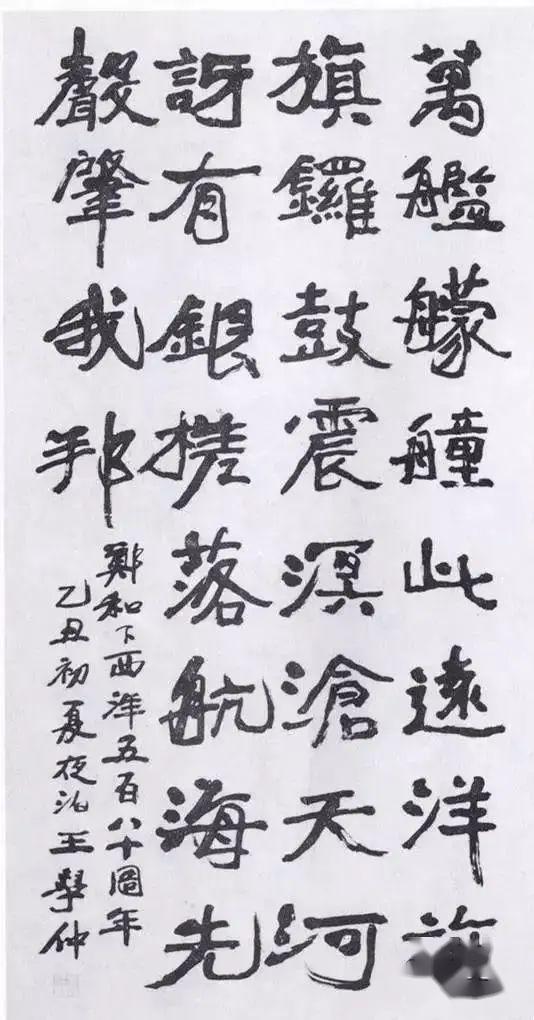 萬艦艨艟此遠洋
旗鑼鼓震溟滄天河
訝有銀槎落航海先
聲肇我邦
鄭和下西洋五百八十周年
乙丑初夏夜泊王學仲